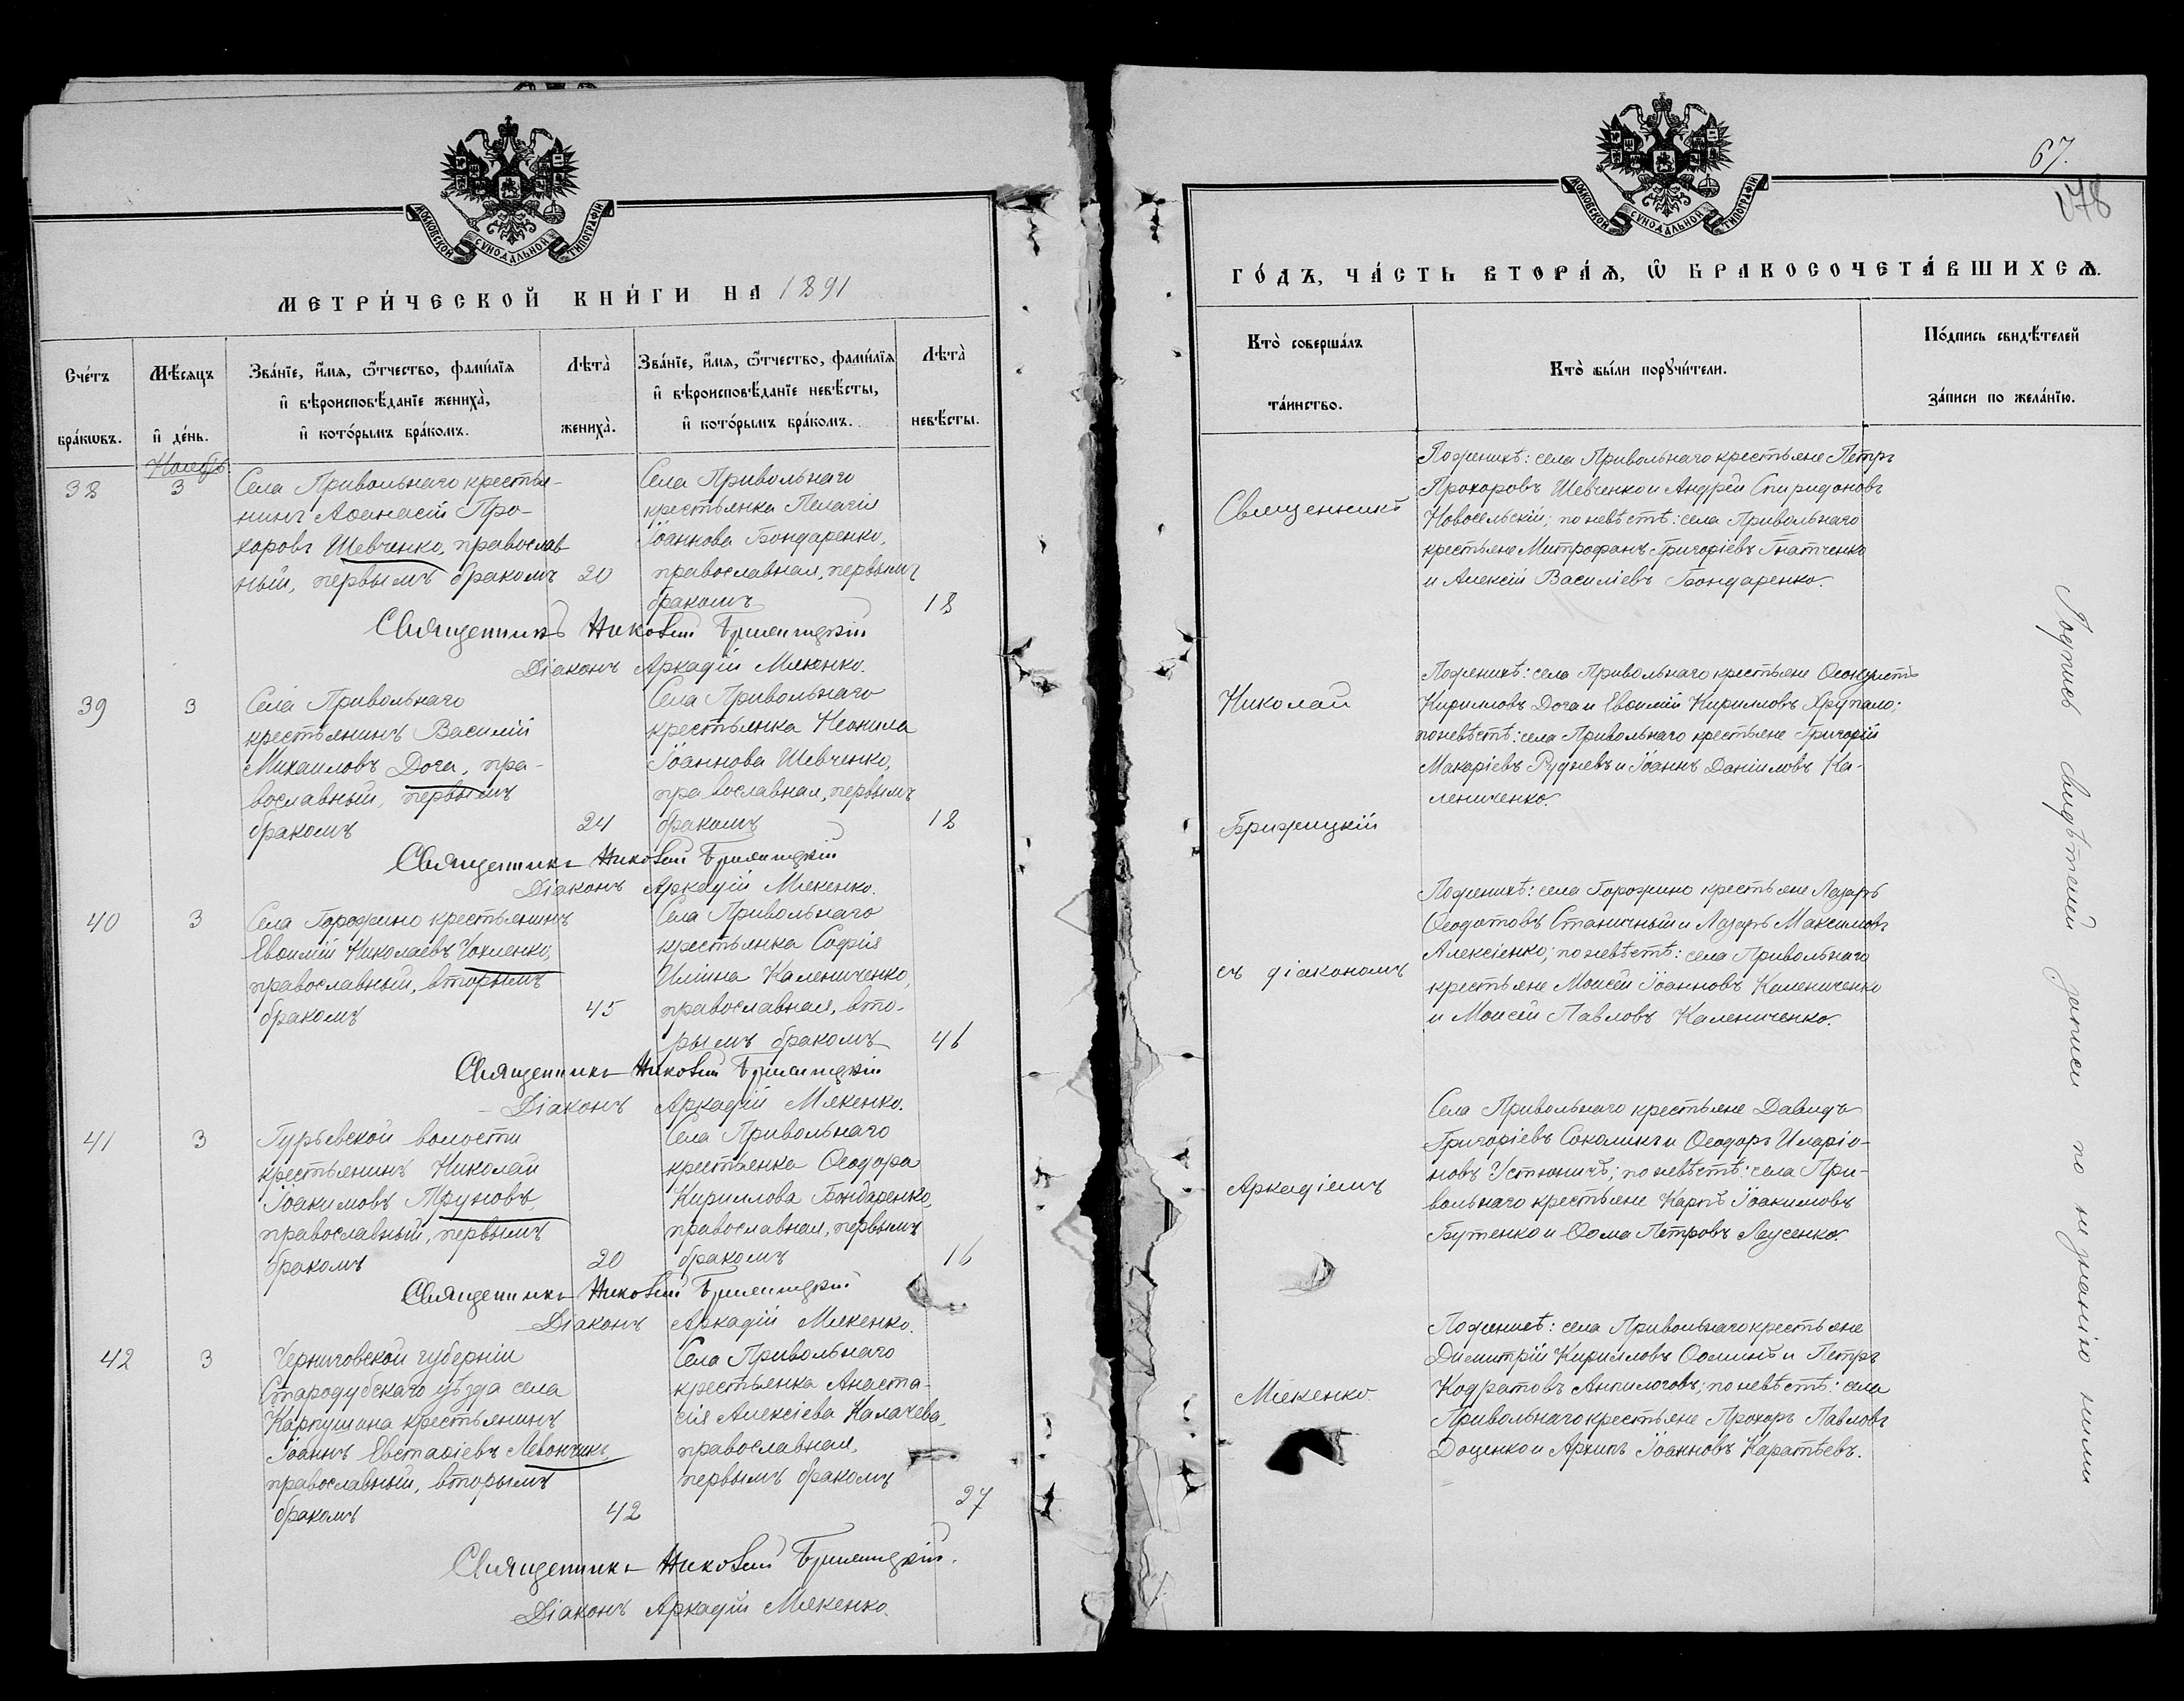 МОСКОВСКОЙ СѴНОДАЛЬНОЙ ТИПОГРАФІИ
МЕТРИ́ЧЕСКОЙ КНИ́ГИ НА 1891
Сче́тъ бра́кѡвъ.
Мѣ́сяцъ и҆ де́нь.
Зва́нїе, и҆́мя, ѻ҆́тчество, фами́лїя
и҆ вѣроисповѣ́данїе жениха̀,
и҆ кото́рымъ бра́комъ.
Лѣта̀ жениха̀.
Зва́нїе, и҆́мя, ѻ҆́тчество, фами́лїя
и҆ вѣроисповѣ́данїе невѣ́сты,
и҆ кото́рымъ бра́комъ.
Лѣта̀ невѣ́сты.
Ноябрь
38
3
Села Привольнаго крестья-
нинъ Аѳанасій Про-
хоровъ Шевченко, православ
ный, первымъ бракомъ
20
Села Привольнаго
крестьянка Пелагія
Іоаннова Бондаренко,
православная, первымъ
бракомъ
18
Священникъ Николай Брижицкій
Діаконъ Аркадій Млкенко.
39
3
Села Привольнаго
крестьянинъ Василій
Михаиловъ Дога, пра-
вославный, первымъ
бракомъ
24
Села Привольнаго
крестьянка Неонила
Іоаннова Шевченко,
православная, первымъ
бракомъ
18
Священникъ Николай Брижицкій
Діаконъ Аркадій
40
3
Села Горожино крестьянинъ
Евѳимій Николаевъ
православный, вторымъ
бракомъ
45
Села Привольнаго
крестьянка Софія
Илiина Калениченко,
православная, вто-
рымъ бракомъ
46
Священникъ Николай Брижицкій
Діаконъ Аркадій
41
3
Гурьевской волости
крестьянинъ Николай
Іоакимовъ Труновъ
православный, первымъ
бракомъ
20
Села Привольнаго
крестьянка Ѳеодора
Кириллова Бондаренко,
православная, первымъ
бракомъ
16
Священникъ Николай Брижицкій
Діаконъ Аркадій
42
3
Черниговской губерніи
Стародубскаго уѣзда села
Карпушина крестьянинъ
Іоаннъ Евстаѳіевъ Левончикъ,
православный, вторымъ
бракомъ
42
Села Привольнаго
крестьянка Анаста-
сія Алексіева Калачева,
православная,
первымъ бракомъ
27
Священникъ Николай Брижицкій.
Діаконъ Аркадій
67.
МОСКОВСКОЙ СѴНОДАЛЬНОЙ ТИПОГРАФІИ
ГО́ДЪ, ЧА́СТЬ ВТОРА́Ѧ, Ѽ БРАКОСОЧЕТА́ВШИХСѦ.
Кто̀ соверша́лъ
та́инство.
Кто̀ бы́ли порꙋчи́тели.
По́дпись свидѣ́телей
за́писи по жела́нїю.
Священникъ
Николай
Брижицкій
съ діакономъ
Аркадіемъ
По женихѣ: села Привольнаго крестьяне Петръ
Прохоровъ Шевченко и Андрей Спиридоновъ
Новосельскій; по невѣстѣ: села Привольнаго
крестьяне Митрофанъ Григоріевъ Гнатченко
и Алексій Василіевъ Бондаренко.
По женихѣ: села Привольнаго крестьяне
Кирилловъ Дога и Евѳимій Кирилловъ Хрупало;
по невѣстѣ: села Привольнаго крестьяне Григорій
Макаріевъ Рудневъ и Іоаннъ Даніиловъ Ка-
лениченко.
По женихѣ: села Горожино крестьяне Лазарь
Ѳеодотовъ Станичный и Лазарь Максимовъ
Алексіенко; по невѣстѣ: села Привольнаго
крестьяне Моисей Іоанновъ Калениченко
и Моисей Павловъ Калениченко.
Села Привольнаго крестьяне Давидъ
Григоріевъ Соколикъ и Ѳеодоръ Иларіо-
новъ Устюничъ; по невѣстѣ: села При-
вольнаго крестьяне Карпъ Іоакимовъ
Бутенко и Ѳома Петровъ Лаусенко.
По женихѣ: села Привольнаго крестьяне
Димитрій Кирилловъ Ѳоминъ и Петръ
Кодратовъ Анпилоговъ; по невѣстѣ: села
Привольнаго крестьяне Прохоръ Павловъ
Доценко и Архипъ Іоанновъ Каратѣевъ.
Подписей свидѣтелей записи по незнанію ними